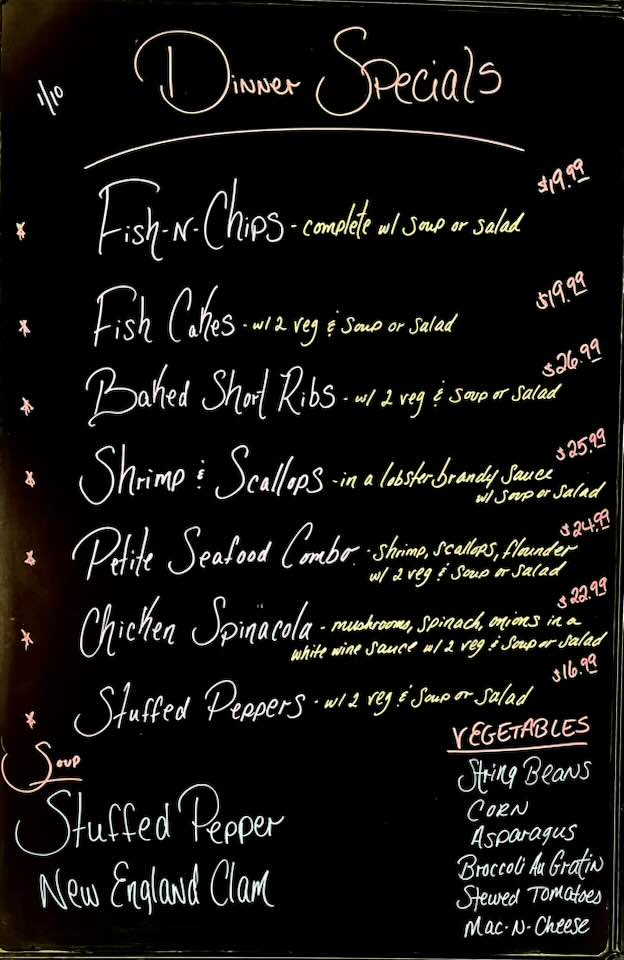 1/10
Dinner Specials
$19.99
* Fish-N-Chips - complete w/ soup or salad
$19.99
* Fish Cakes - w/ 2 veg & soup or salad
$26.99
* Baked Short Ribs - w/ 2 veg & soup or salad
$25.99
* Shrimp & Scallops - in a lobster brandy sauce
w/ soup or salad
$24.99
* Petite Seafood Combo - shrimp, scallops, flounder
w/ 2 veg & soup or salad
$22.99
* Chicken Spinacola - mushrooms, spinach, onions in a
white wine sauce w/ 2 veg & soup or salad
$16.99
* Stuffed Peppers - w/ 2 veg & soup or salad
Soup
Stuffed Pepper
New England Clam
VEGETABLES
String Beans
Corn
Asparagus
Broccoli Au Gratin
Stewed Tomatoes
Mac-N-Cheese